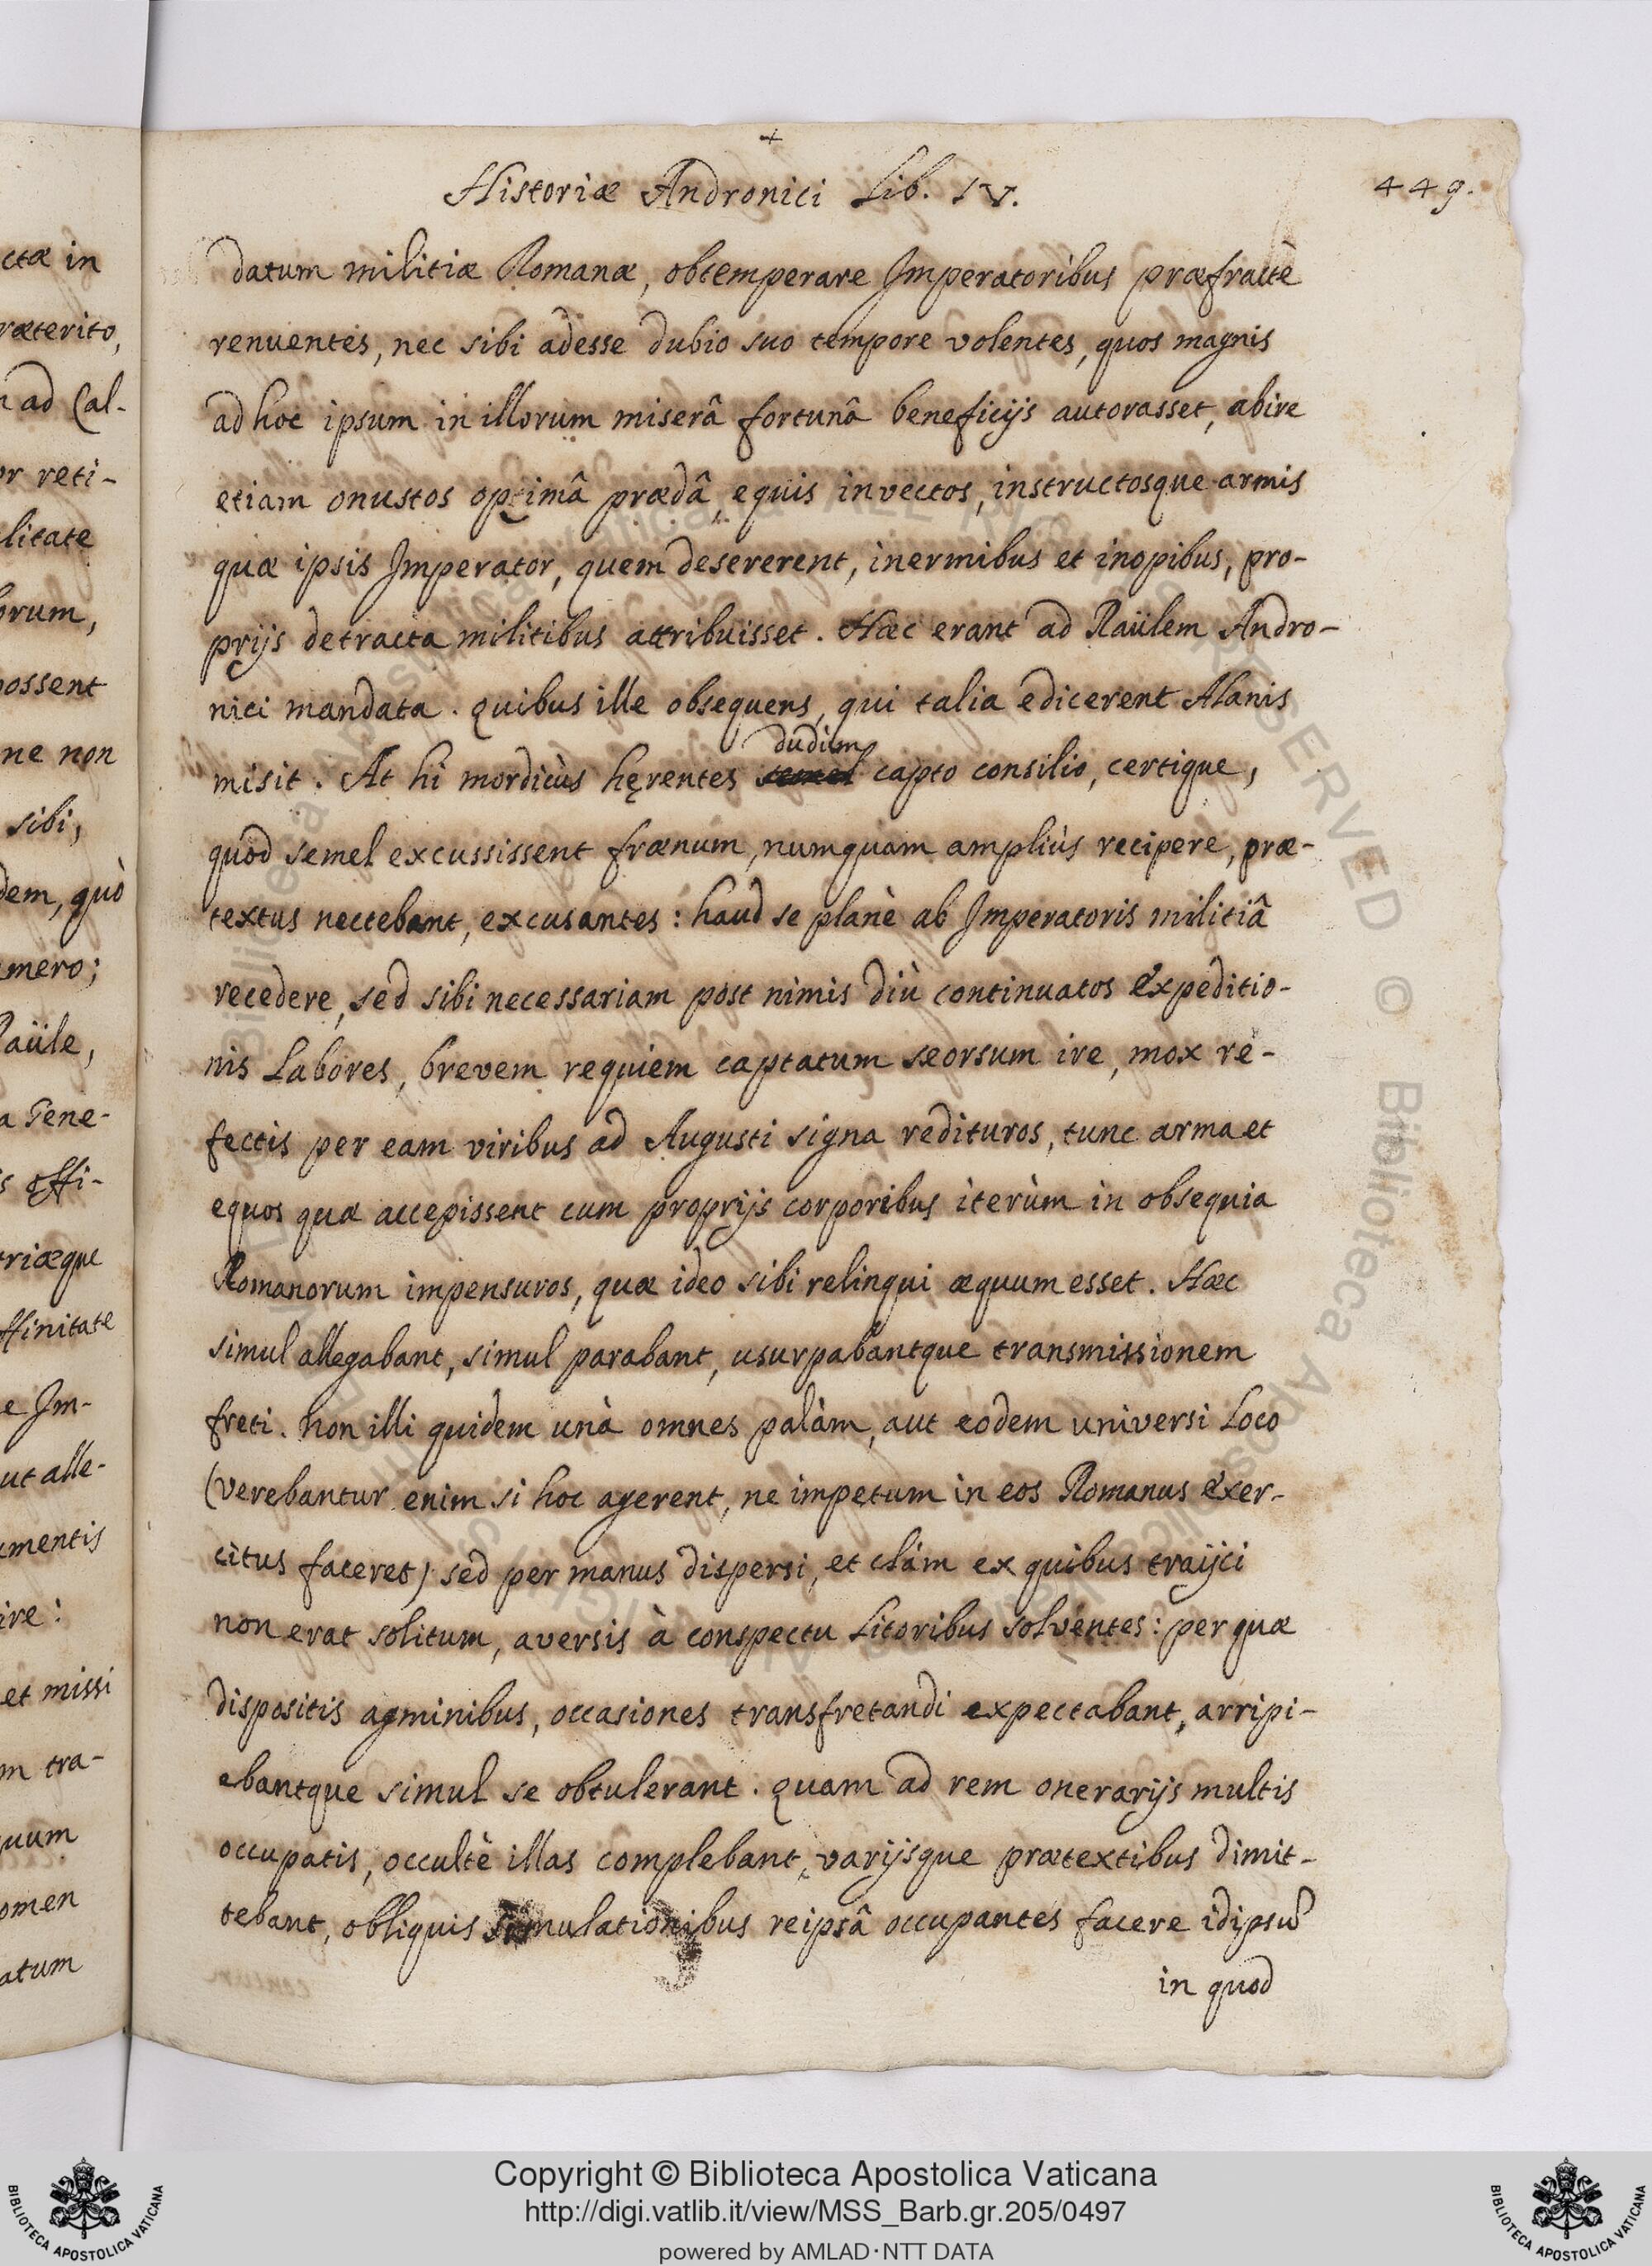 +
Historiæ Andronici Lib. IV.
449.
datum militiæ Romanæ, obtemperare Imperatoribus præfractè
renuentes, nec sibi adesse dubio suo tempore volentes, quos magnis
ad hoc ipsum in illorum miserâ fortunâ beneficijs autorasset, abire
etiam onustos optimâ prædâ, equis invectos, instructosque armis
quæ ipsis Imperator, quem desererent, inermibus et inopibus, pro-
prijs detracta militibus attribuisset. Hæc erant ad Raülem Andro-
nici mandata. quibus ille obsequens, qui talia edicerent Alanis
misit. At hi mordicùs hęrentes semel dudum capto consilio, certique,
quod semel excussissent frænum, numquam ampliùs recipere, præ-
textus nectebant, excusantes: haud se planè ab Imperatoris militiâ
recedere, sed sibi necessariam post nimis diù continuatos expeditio-
nis Labores, brevem requiem captatum seorsum ire, mox re-
fectis per eam viribus ad Augusti signa redituros, tunc arma et
equos quæ accepissent cum proprijs corporibus iterùm in obsequia
Romanorum impensuros, quæ ideo sibi relinqui æquum esset. Hæc
simul allegabant, simul parabant, usurpabantque transmissionem
freti. non illi quidem unà omnes palàm, aut eodem universi Loco
(verebantur enim si hoc agerent, ne impetum in eos Romanus exer-
citus faceret) sed per manus dispersi, et clàm ex quibus traijci
non erat solitum, aversis à conspectu Litoribus solventes: per quæ
dispositis agminibus, occasiones transfretandi expectabant, arripi-
ebantque simul se obtulerant. quam ad rem onerarijs multis
occupatis, occultè illas complebant, varijsque prætextibus dimit-
tebant, obliquis simulationibus reipsâ occupantes facere idipsũ
in quod
ctæ in
ræterito,
ad Cal-
or reti-
litate
orum,
possent
ne non
sibi,
dem, quò
mero;
Raüle,
a Gene-
s effi-
triæque
ffinitate
e Im-
ut alle-
mentis
ire:
et missi
m tra-
quum
omen
atum
Copyright © Biblioteca Apostolica Vaticana
http://digi.vatlib.it/view/MSS_Barb.gr.205/0497
powered by AMLAD·NTT DATA
BIBLIOTECA APOSTOLICA VATICANA
BIBLIOTECA APOSTOLICA VATICANA